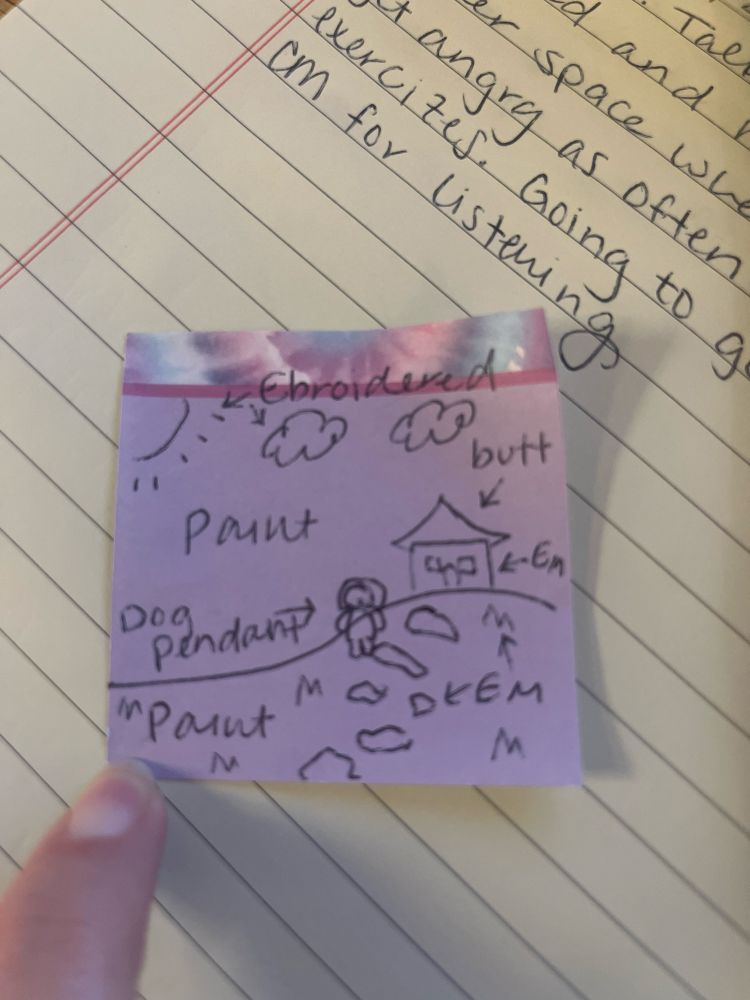 Tal
d and
er space whe
t angry as often
exercizes. Going to g
cm for listening
Ebroidered
butt
Paint
Em
Dog
pendant
M
M
M
D EM
Paint
M
M